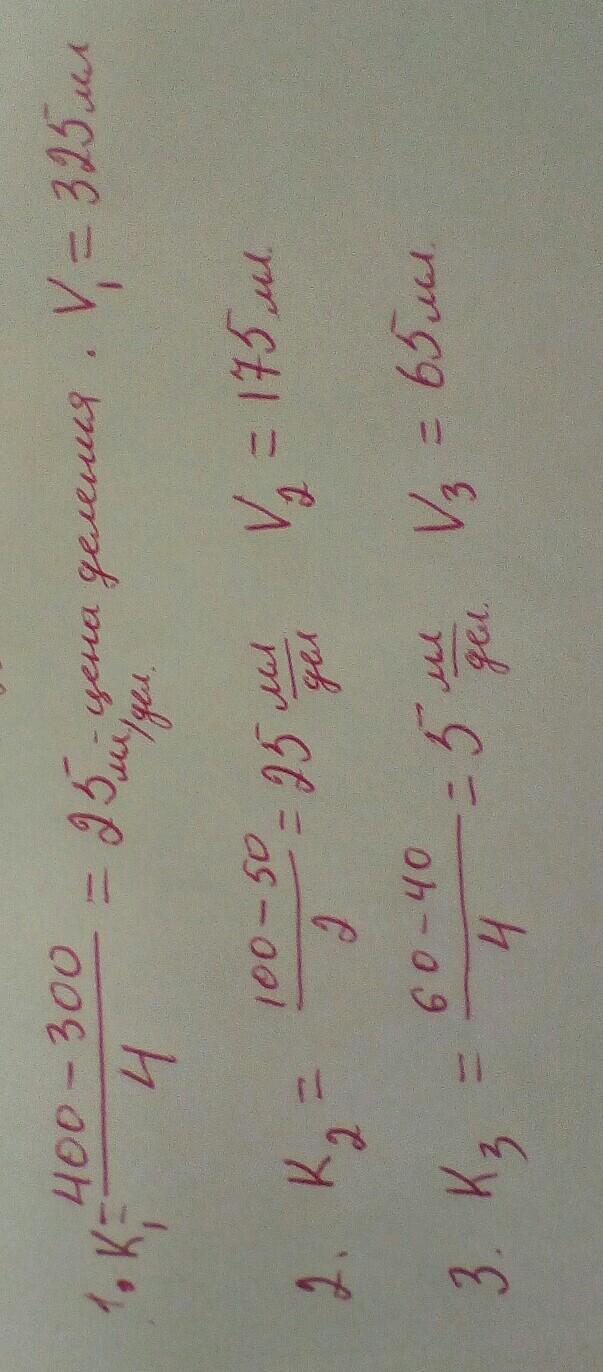 1. K₁ = (400 - 300)/4 = 25 мл/дел. - цена деления. V₁ = 325 мл
2. K₂ = (100 - 50)/2 = 25 мл/дел V₂ = 175 мл.
3. K₃ = (60 - 40)/4 = 5 мл/дел. V₃ = 65 мл.